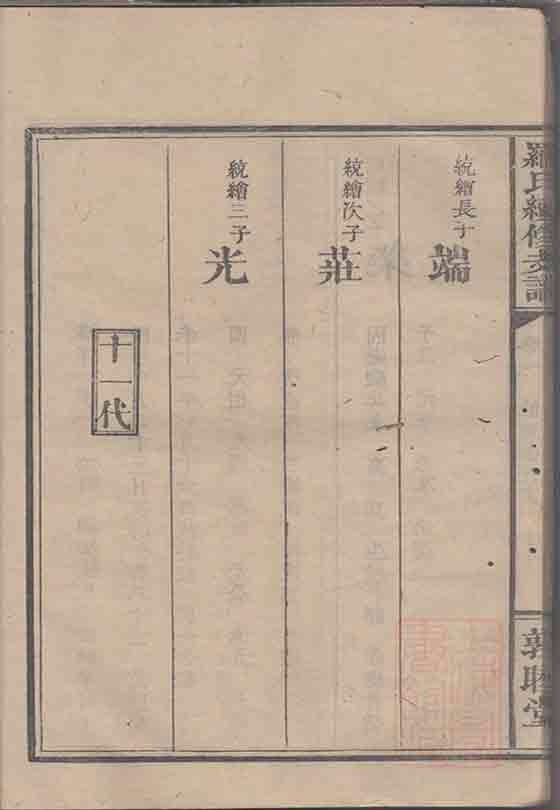 羅氏續修支譜
敦睦堂
統繪長子
端
統繪次子
莊
統繪三子
光
十一代